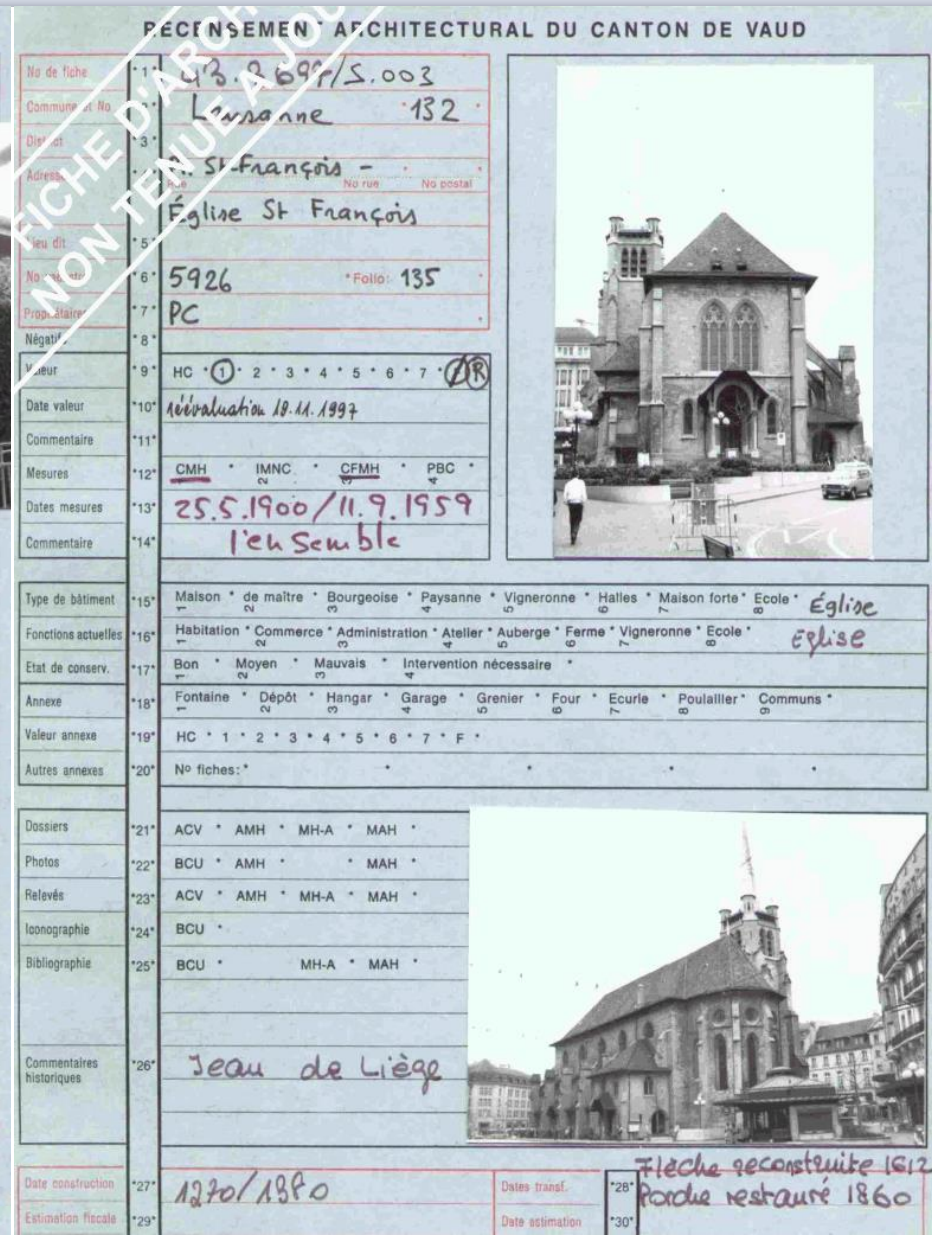 RECENSEMENT ARCHITECTURAL DU CANTON DE VAUD
FICHE D'ARCH
NON TENUE A JOU
No de fiche *1* /S.003
Commune et No Lausanne 132
District *3*
Adresse St-François -
Rue No rue No postal
Église St François
Lieu dit *5*
No cadastre *6* 5926 Folio: 135
Propriétaire *7* PC
Négatif *8*
Valeur *9* HC * 1 * 2 * 3 * 4 * 5 * 6 * 7 * R
Date valeur *10* réévaluation 19.11.1997
Commentaire *11*
Mesures *12* CMH * IMNC * CFMH * PBC *
2 3 4
Dates mesures *13* 25.5.1900/11.9.1959
Commentaire *14* l'ensemble
Type de bâtiment *15* Maison * de maître * Bourgeoise * Paysanne * Vigneronne * Halles * Maison forte * Ecole * Église
1 2 3 4 5 6 7 8
Fonctions actuelles *16* Habitation * Commerce * Administration * Atelier * Auberge * Ferme * Vigneronne * Ecole * Eglise
1 2 3 4 5 6 7 8
Etat de conserv. *17* Bon * Moyen * Mauvais * Intervention nécessaire *
1 2 3 4
Annexe *18* Fontaine * Dépôt * Hangar * Garage * Grenier * Four * Ecurie * Poulailler * Communs *
1 2 3 4 5 6 7 8 9
Valeur annexe *19* HC * 1 * 2 * 3 * 4 * 5 * 6 * 7 * F *
Autres annexes *20* Nº fiches: * * * * *
Dossiers *21* ACV * AMH * MH-A * MAH *
Photos *22* BCU * AMH * * MAH *
Relevés *23* ACV * AMH * MH-A * MAH *
Iconographie *24* BCU *
Bibliographie *25* BCU * MH-A * MAH *
Commentaires historiques *26* Jean de Liège
Flèche reconstruite 1612
Date construction *27* 1270/ Dates transf. *28* Porche restauré 1860
Estimation fiscale *29* Date estimation *30*